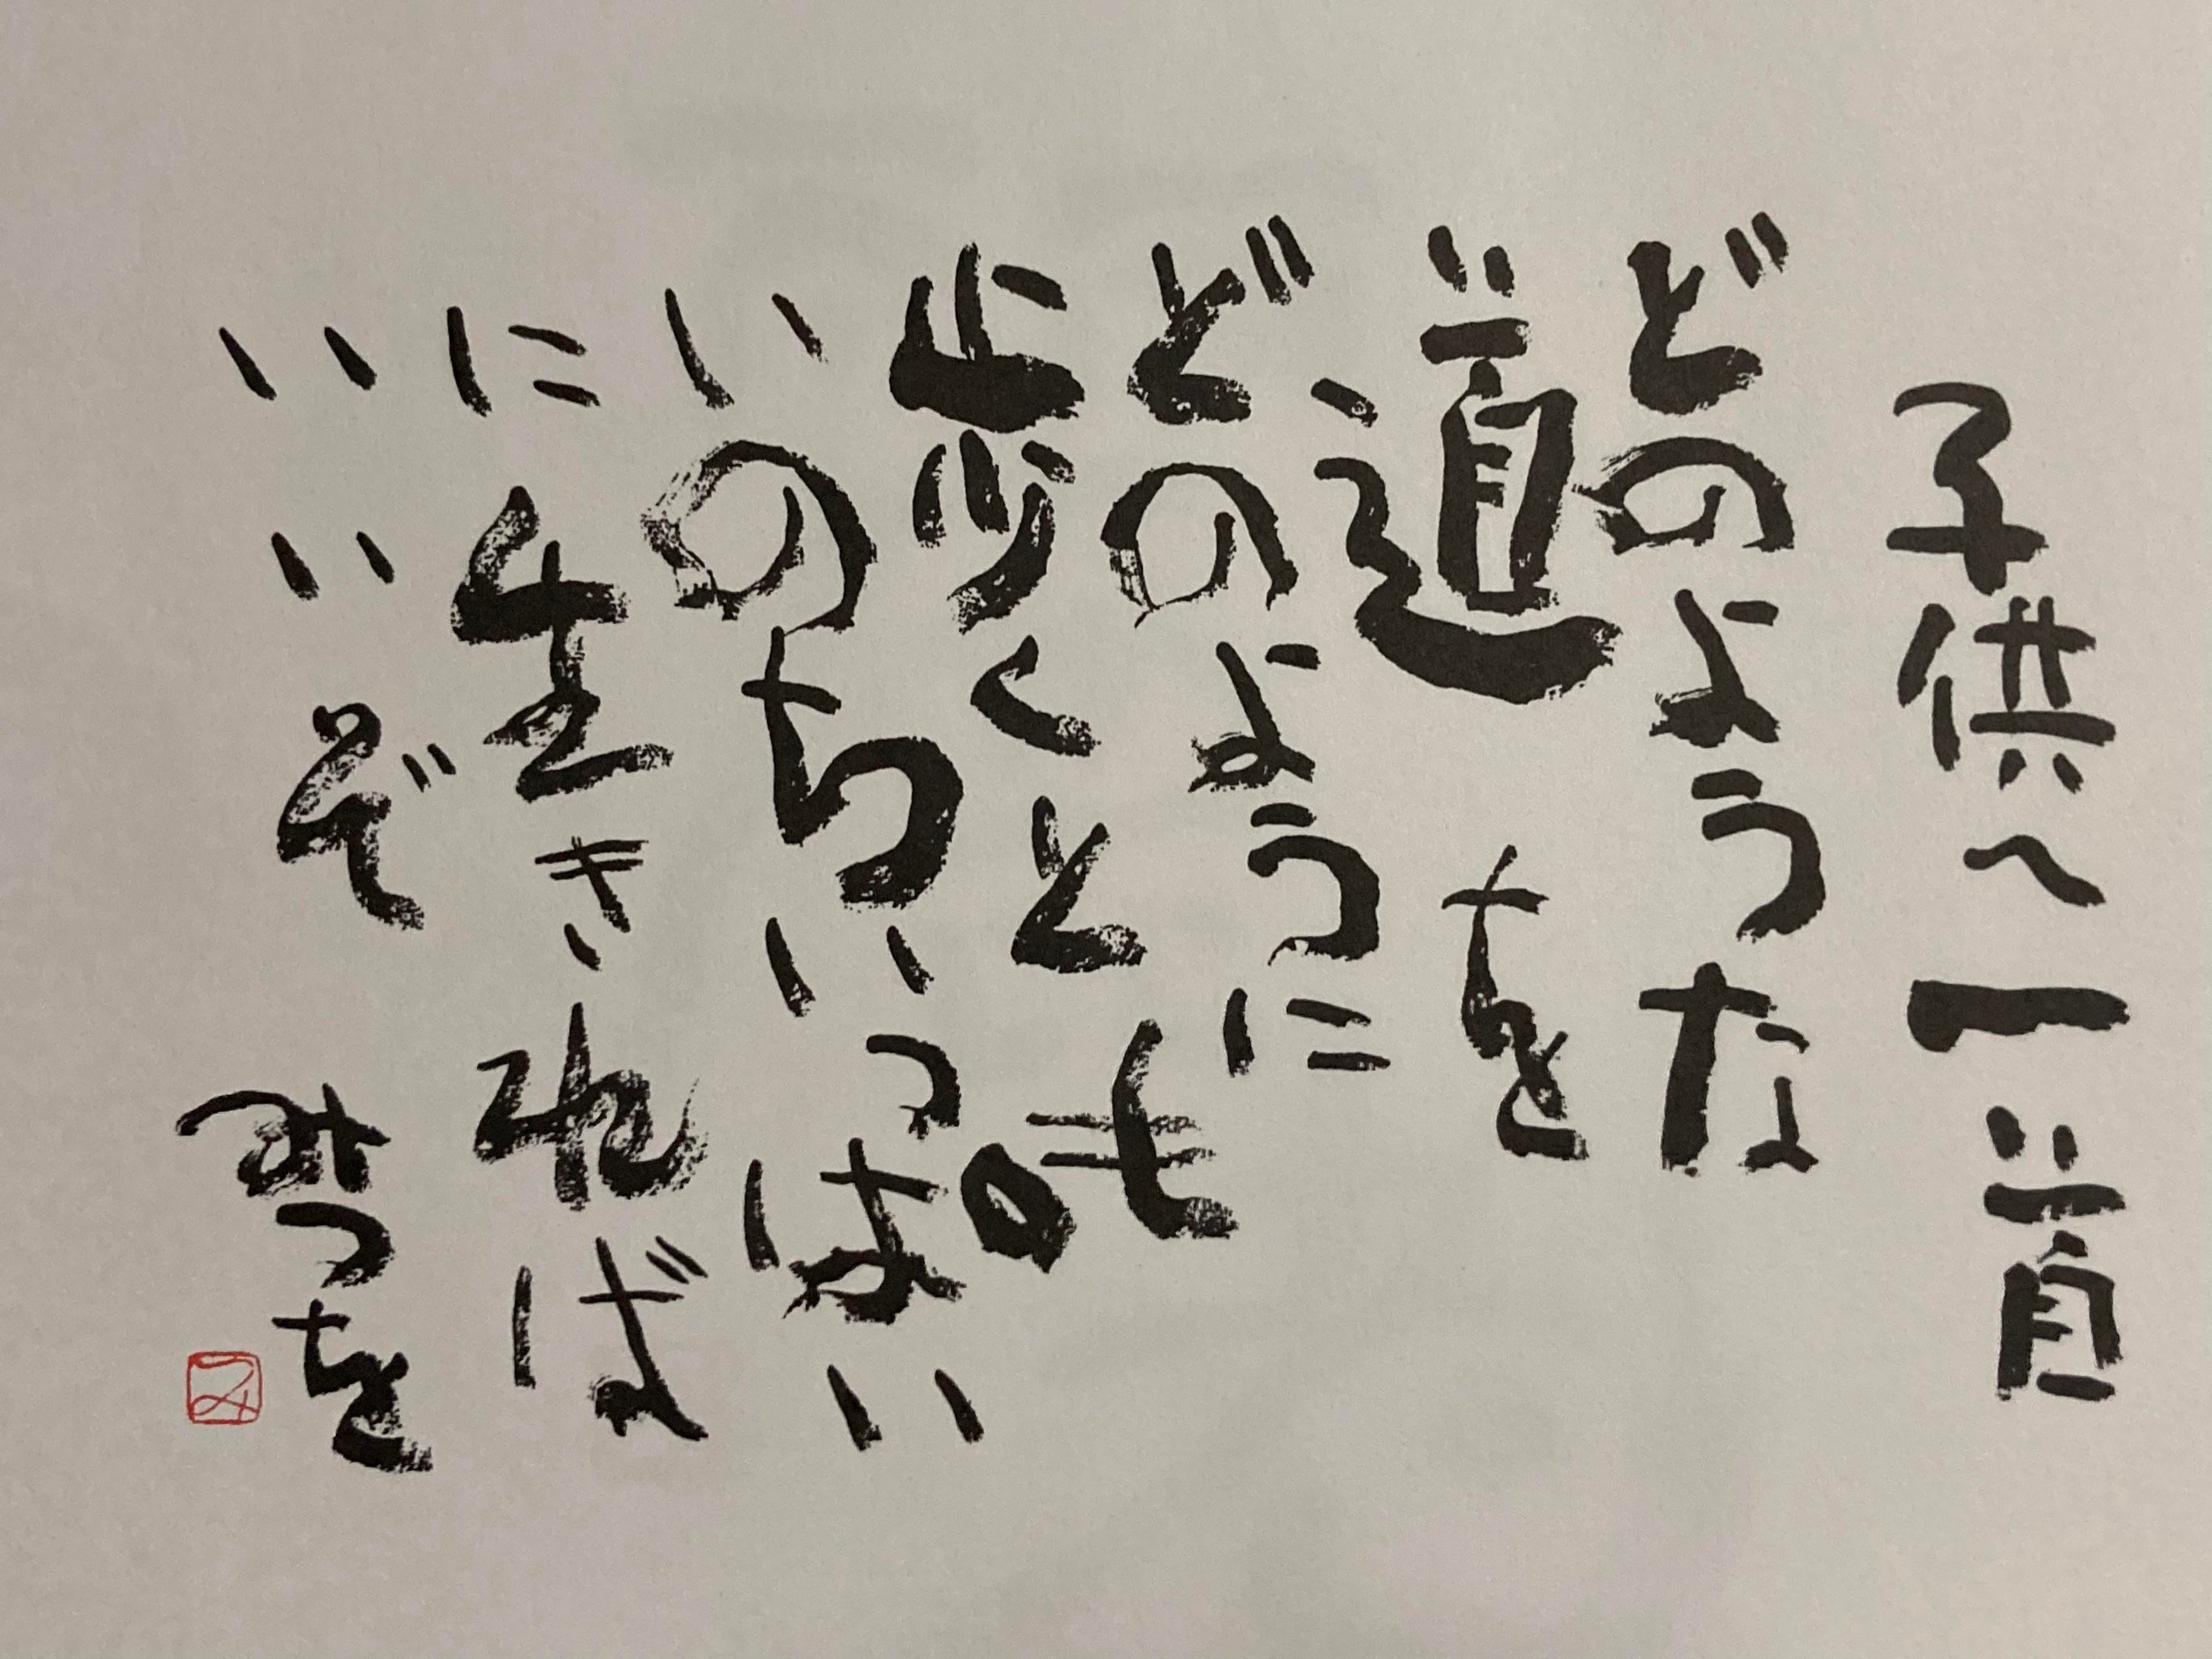 子供へ一首
どのような
道を
どのように
歩くとも
いのちいっぱい
に生きれば
いいぞ
みつを